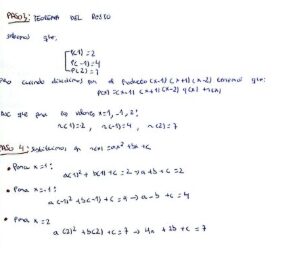 PASO 3: TEOREMA DEL RESTO
sabemos que:
P(1) = 2
P(-1) = 4
P(2) = 7
cuando dividimos por el producto (x-1)(x+1)(x-2) tenemos que:
P(x) = (x-1)(x+1)(x-2) q(x) + r(x)
que para los valores x=1, -1, 2:
r(1) = 2, r(-1) = 4, r(2) = 7
PASO 4: sustituimos en r(x) = ax² + bx + c
• Para x=1:
a(1)² + b(1) + c = 2 → a + b + c = 2
• Para x=-1:
a(-1)² + b(-1) + c = 4 → a - b + c = 4
• Para x=2
a(2)² + b(2) + c = 7 → 4a + 2b + c = 7